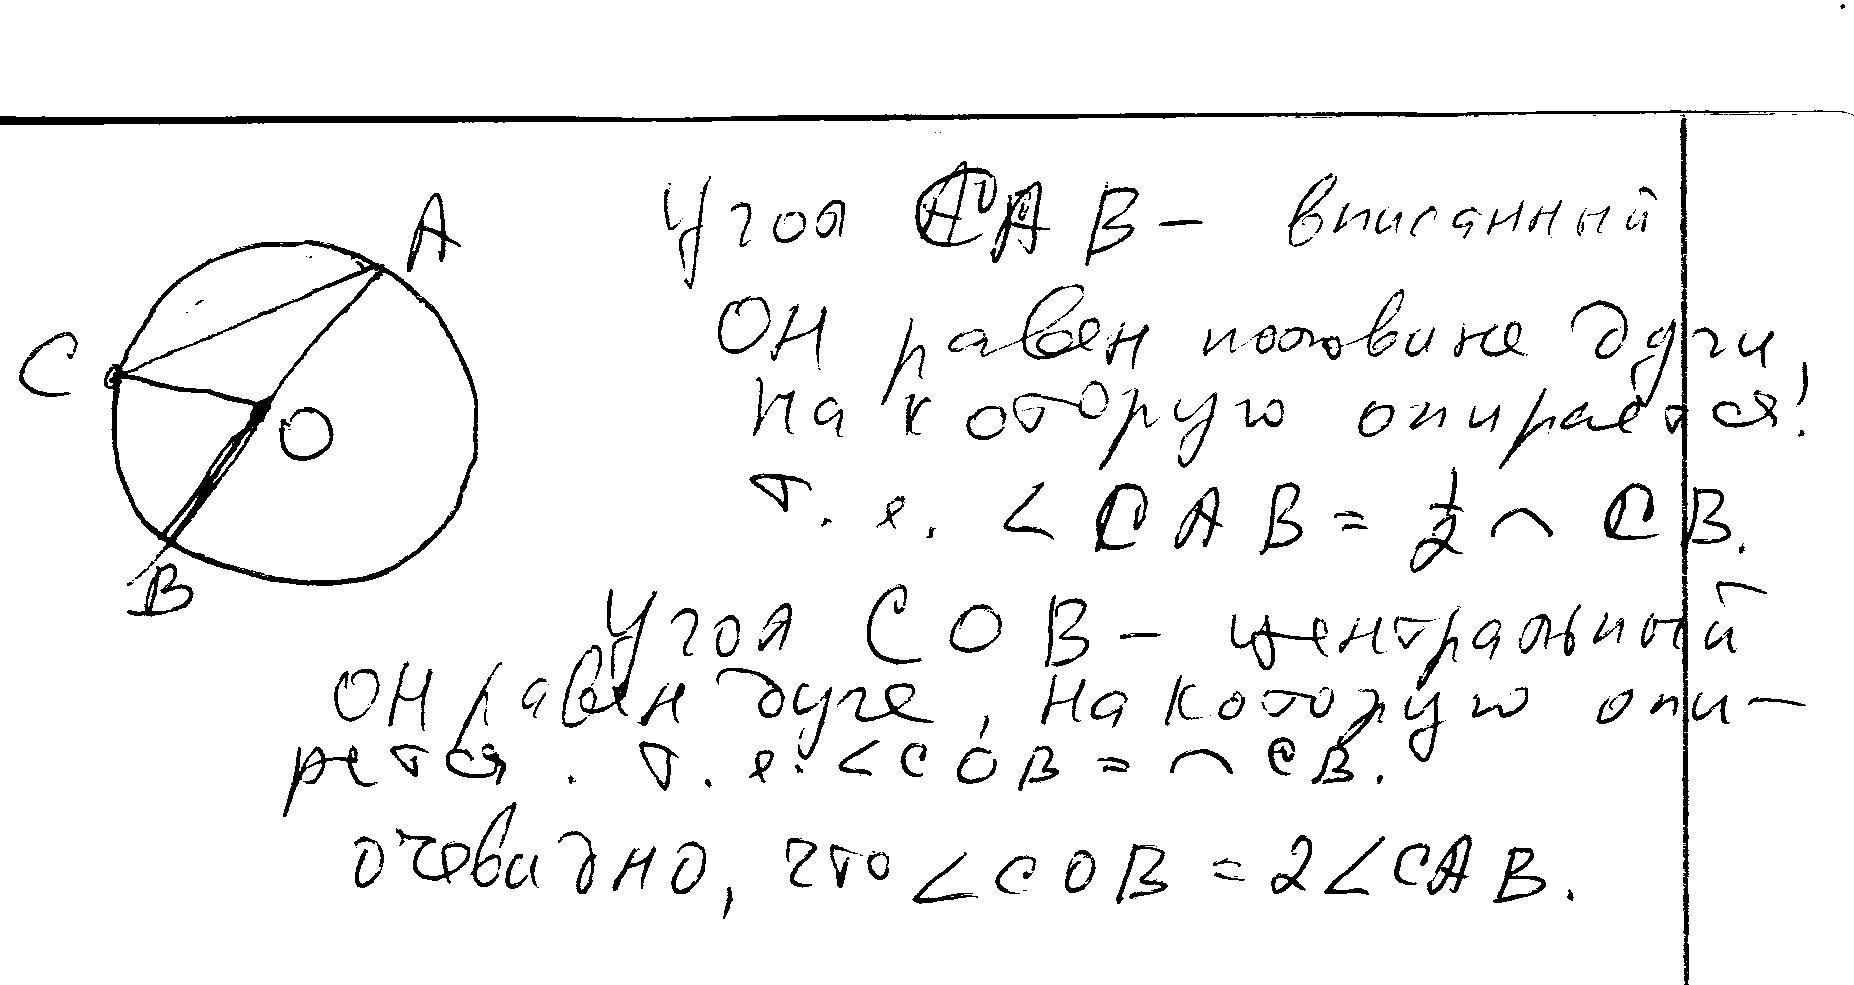 A
C
O
B
Угол CAB – вписанный
Он равен половине дуги,
на которую опирается!
Т. е. < CAB = 1/2 ⌒ CB.
Угол COB – центральный
Он равен дуге, на которую опи-
рется. Т. е. < COB = ⌒ CB.
очевидно, что < COB = 2 < CAB.